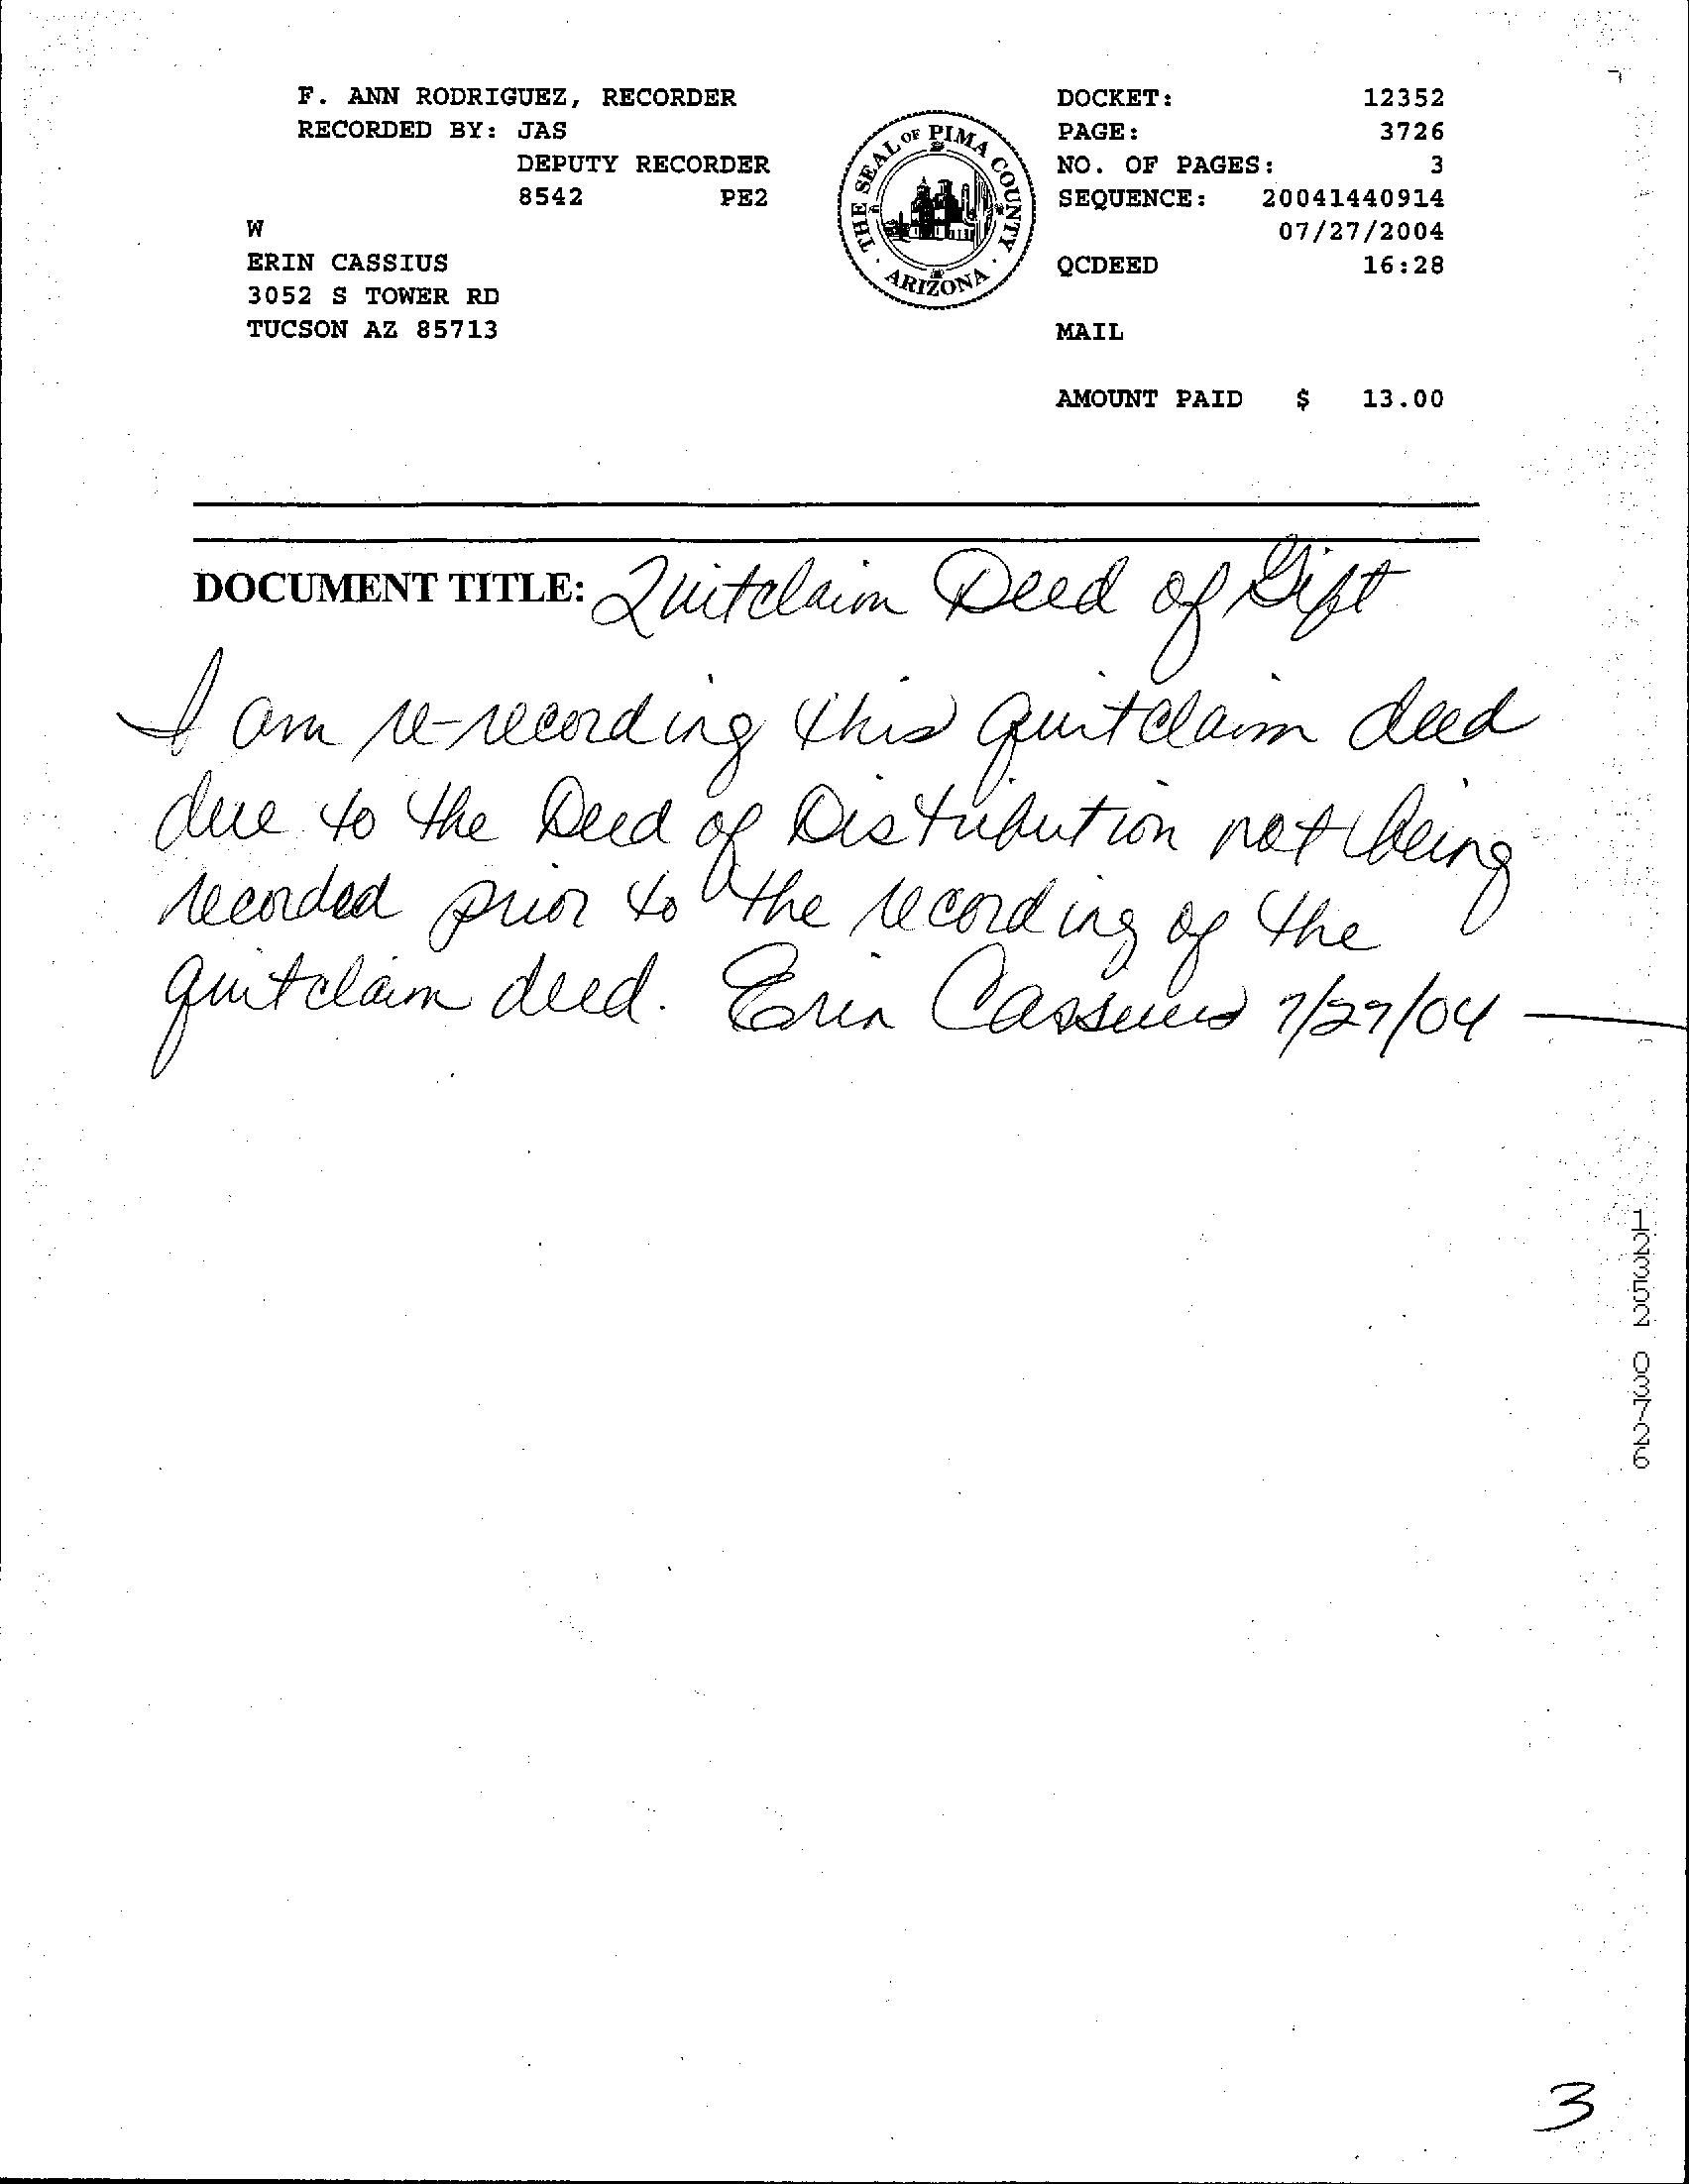 F. ANN RODRIGUEZ, RECORDER
RECORDED BY: JAS
DEPUTY RECORDER
8542 PE2
W
ERIN CASSIUS
3052 S TOWER RD
TUCSON AZ 85713
THE SEAL OF PIMA COUNTY · ARIZONA ·
DOCKET: 12352
PAGE: 3726
NO. OF PAGES: 3
SEQUENCE: 20041440914
07/27/2004
QCDEED 16:28
MAIL
AMOUNT PAID $ 13.00
DOCUMENT TITLE: Quitclaim Deed of Gift
I am re-recording this quitclaim deed
due to the Deed of Distribution not being
recorded prior to the recording of the
quitclaim deed. Erin Cassius 7/27/04
12352 03726
3